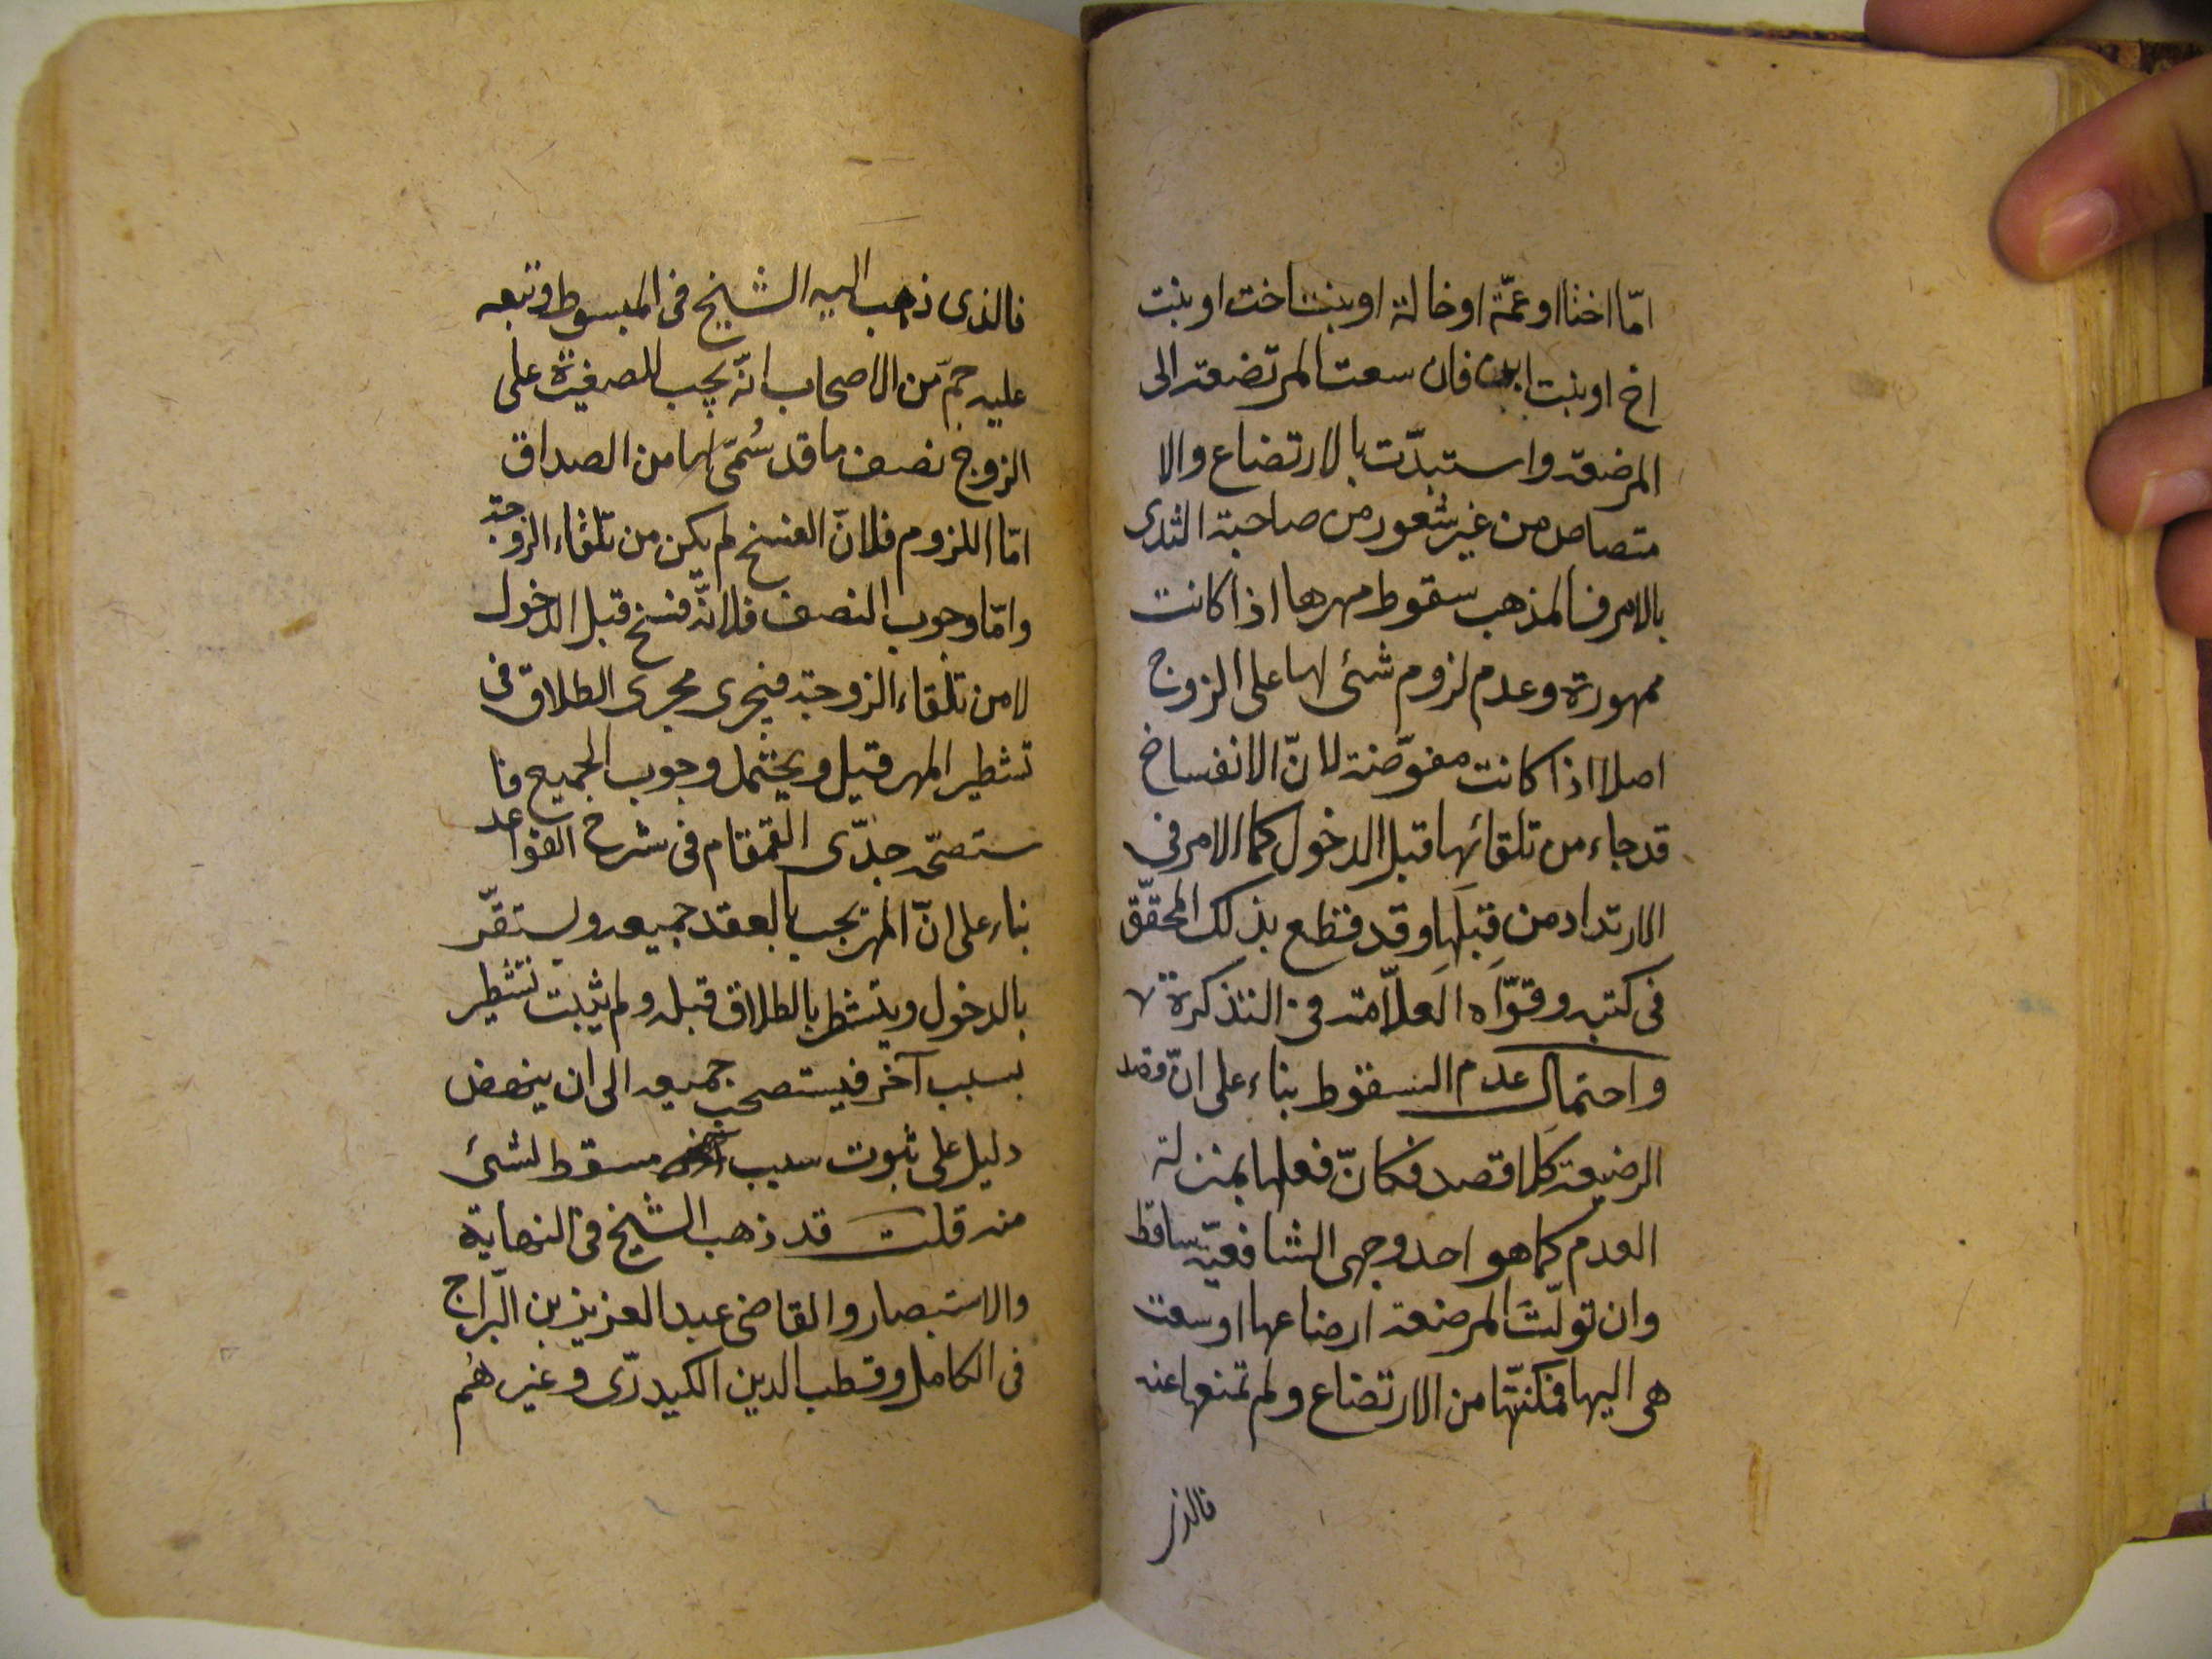 امّا اختا او عمّة او خالة او بنت اخت او بنت
اخ او بنت ابن فان سعت المرتضعة الى
المرضعة واستبدّت بالارتضاع والا
متصاص من غير شعور من صاحبة الثدى
بالامر فالمذهب سقوط مهرها اذا كانت
ممهورة وعدم لزوم شئ لها على الزوج
اصلا اذا كانت مفوّضة لانّ الانفساخ
قد جاء من تلقائها قبل الدخول كما الامر فى
الارتداد من قِبَلِها وقد قطع بذلك المحقّق
فى كتبه وقوّاه العلاّمة فى التذكرة
واحتمال عدم السقوط بناء على انّ قصد
الرضيعة كلا قصد فكانّ فعلها بمنزلة
العدم كما هو احد وجهى الشافعيّة ساقط
وان تولّت المرضعة ارضاعها او سعت
هى اليها فمكنتّها من الارتضاع ولم تمنعها عنه
فالذى
فالذى ذهب اليه الشيخ فى المبسوط وتبعه
عليه جمّ من الاصحاب انّه يجب للصغيرة على
الزوج نصف ما قد سُمّى لها من الصداق
امّا اللزوم فلانّ الفسخ لم يكن من تلقاء الزوجة
وامّا وجوب النصف فلانّه فسخ قبل الدخول
لا من تلقاء الزوجة فيجرى مجرى الطلاق فى
تشطير المهر قيل ويحتمل وجوب الجميع فا
ستصحّه جدّى القمقام فى شرح القواعد
بناء على انّ المهر يجب بالعقد جميعه ويستقرّ
بالدخول ويتشطر بالطلاق قبله ولم يثبت تشطير
بسبب آخر فيستصحب جميعه الى ان ينهض
دليل على ثبوت سبب مسقط لشئ
منه قلت قد ذهب الشيخ فى النهاية
والاستبصار والقاضى عبد العزيز بن البّراج
فى الكامل وقطب الدين الكيدرّى وغيرهُم